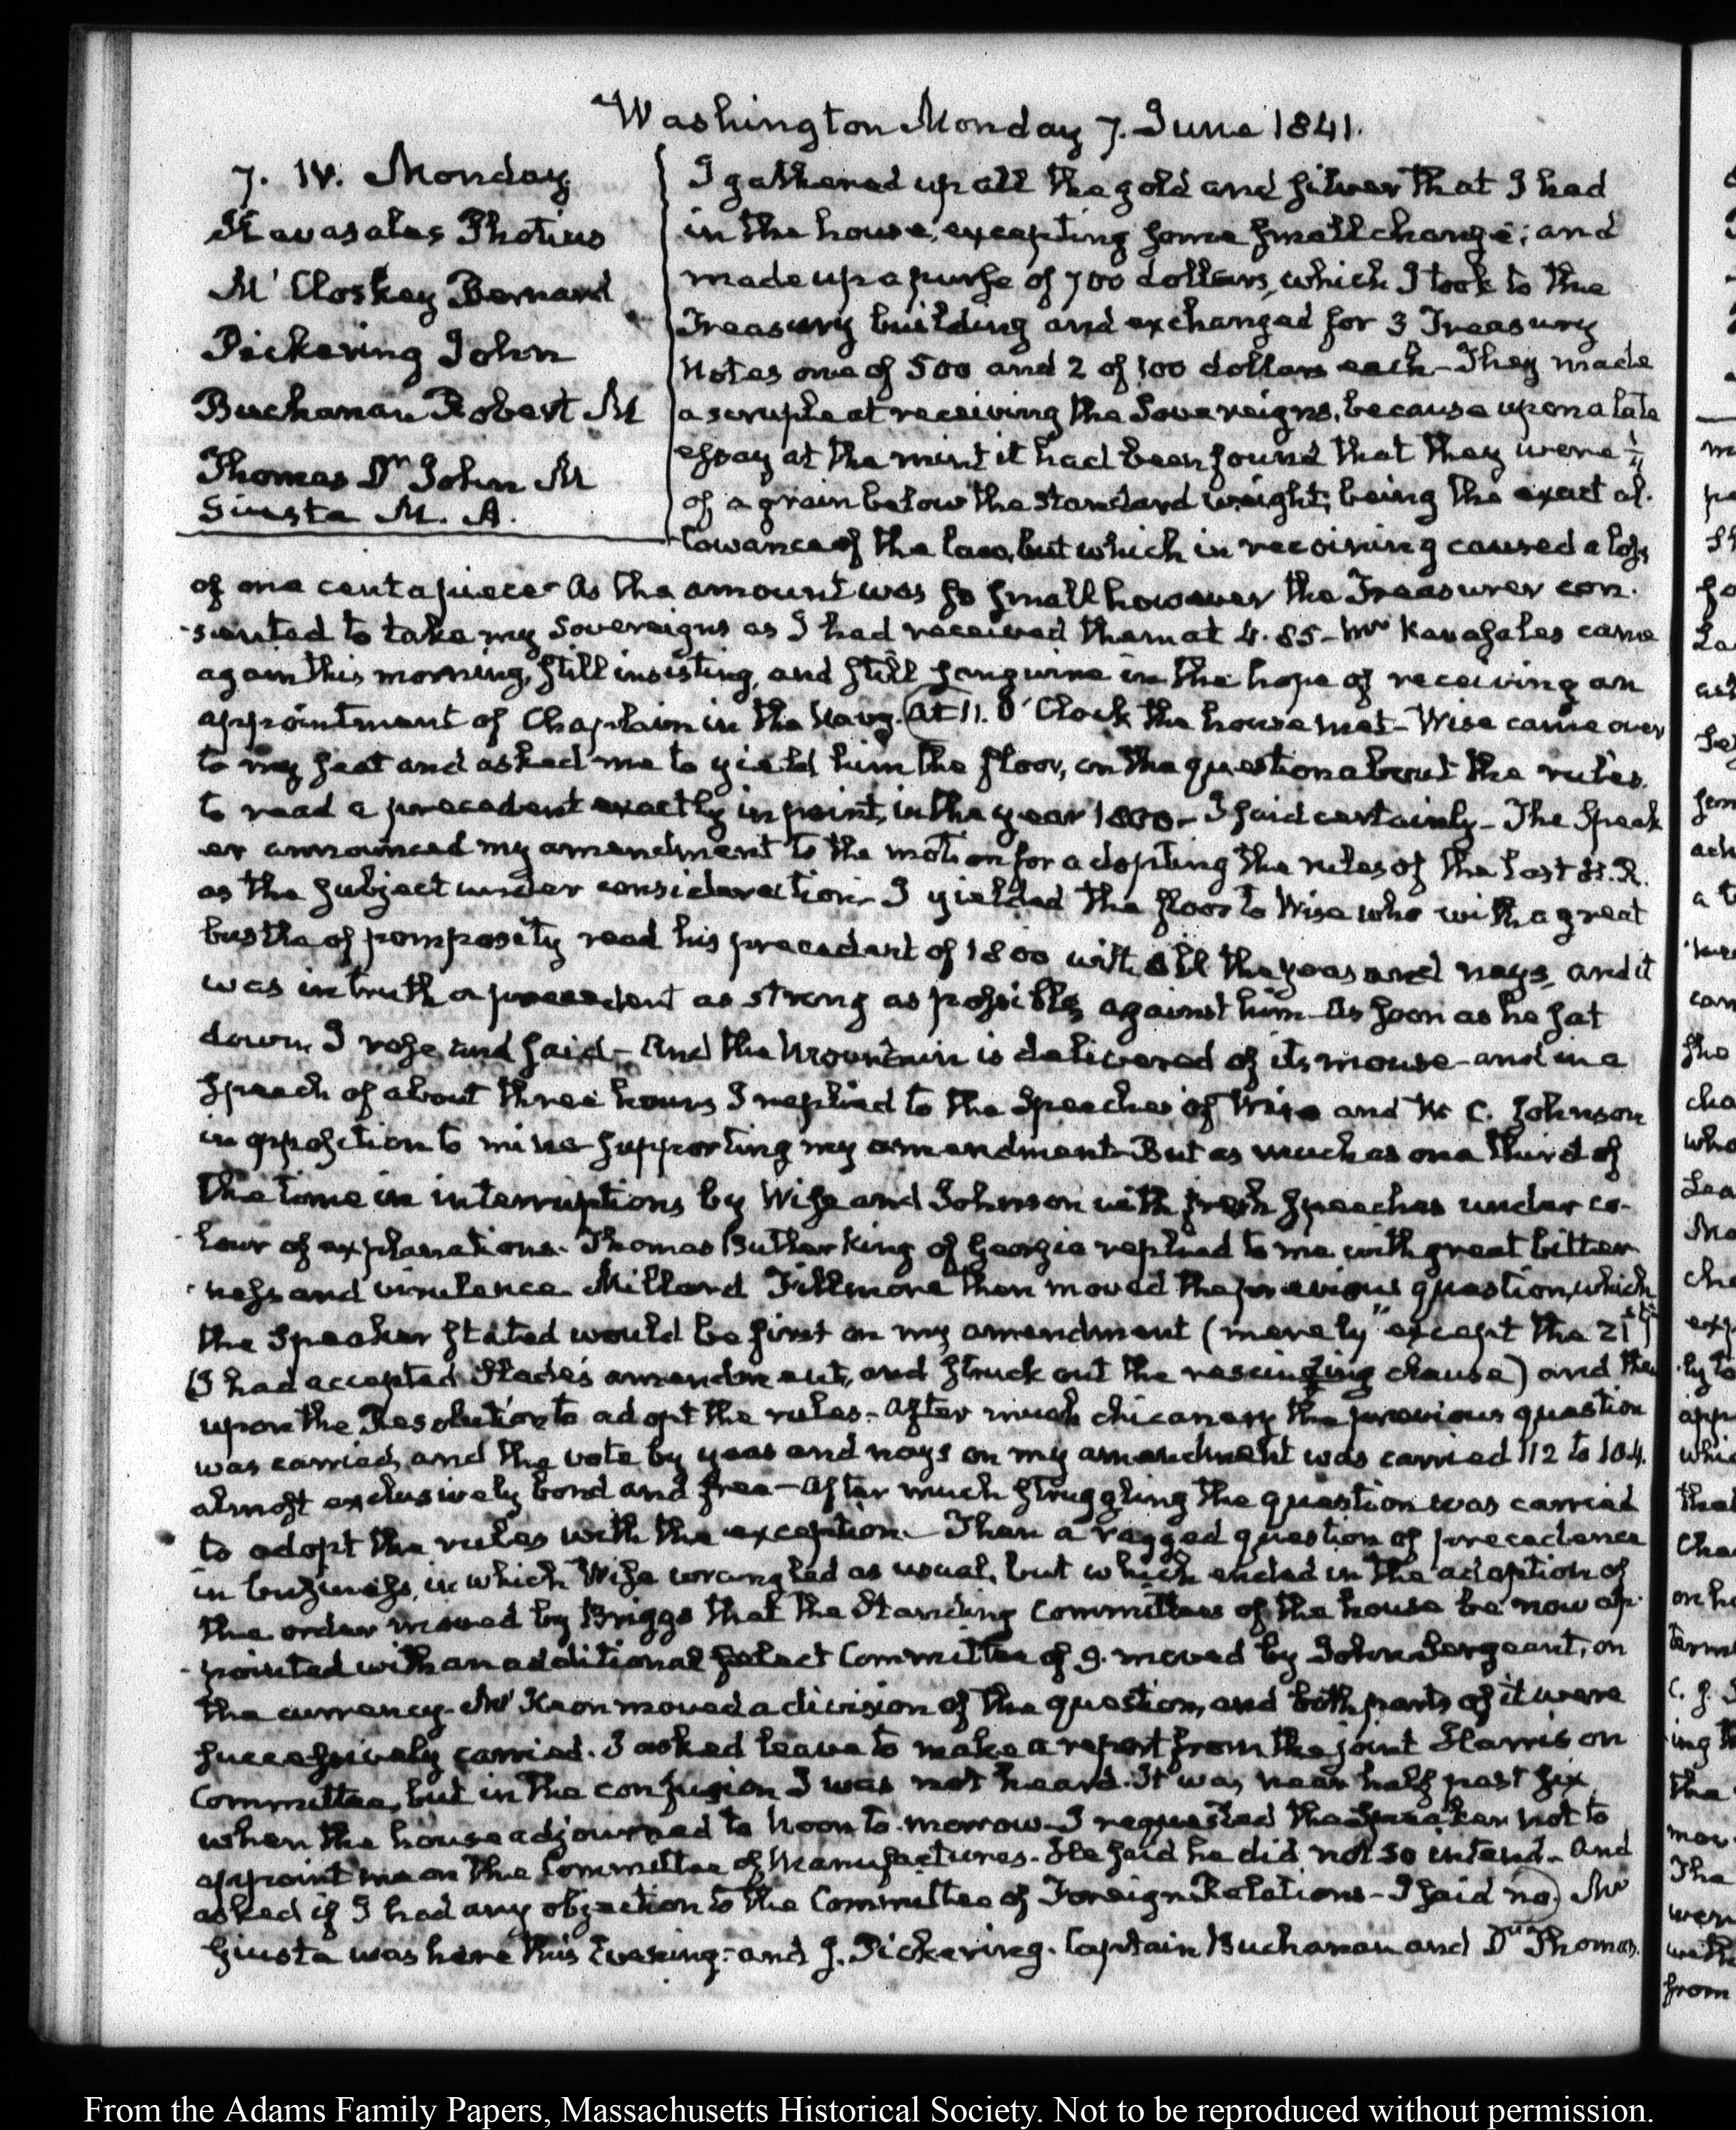 Washington Monday 7. June 1841.
7. IV. Monday
Kavasales Photius
Mc Closkey Bernard
Pickering John
Buchanan Robert M
Thomas Dr John M
Giusta M. A.
I gathered up all the gold and silver that I had
in the house, excepting some small change; and
made up a purse of 700 dollars, which I took to the
Treasury building and exchanged for 3 Treasury
Notes one of 500 and 2 of 100 dollars each- They made
a scruple at receiving the Sovereigns, because upon a late
essay at the mint it had been found that they were
of a grain below the standard weight; being the exact al-
lowance of the law, but which in receiving caused a loss
of one cent apiece- As the amount was so small however the Treasurer con-
-sented to take my Sovereigns as I had received them at 4.85- Mr Kavasales came
again this morning, still insisting, and still sanguine in the hope of receiving an
appointment of Chaplain in the Navy. At 11. O'Clock the house met- Wise came over
to my seat and asked me to yield him the floor, on the question about the rules.
to read a precedent exactly in point, in the year 1800- I said certainly- The Speak
er announced my amendment to the motion for adopting the rules of the last H.R.
as the subject under consideration- I yielded the floor to Wise who with a great
bustle of pomposity read his precedent of 1800 with all the yeas and nays, and it
was in truth a precedent as strong as possible, against him- As soon as he sat
down, I rose, and said- And the Mountain is delivered of its mouse- and in a
Speech of about three hours I replied to the Speeches of Wise and W. C. Johnson
in opposition to mine supporting my amendment- But as much as one third of
the time in interruptions by Wise and Johnson with fresh speeches under co-
-lour of explanations. Thomas Butler King of Georgia replied to me with great bitter
-ness and virulence. Millard Fillmore then moved the previous question, which
the Speaker stated would be first on my amendment (merely "except the 21st"
(I had accepted Slade's amendment, and struck out the rescinding clause) and then
upon the Resolution to adopt the rules- After much chicanery the previous question
was carried, and the vote by yeas and nays on my amendment was carried 112 to 104.
almost exclusively bond and free- After much struggling the question was carried
to adopt the rules with the exception- Then a ragged question of precedence
in business, in which Wise wrangled as usual, but which ended in the adoption of
the order moved by Briggs that the Standing Committees of the house be now ap-
-pointed with an additional select Committee of 9. moved by John Sergeant, on
the currency- McKeon moved a division of the question, and both parts of it were
successively carried. I asked leave to make a report from the joint Harrison
Committee, but in the confusion I was not heard. It was near half past six
when the house adjourned to Noon to-morrow- I requested the Speaker not to
appoint me on the Committee of Manufactures- He said he did not so intend- And
asked if I had any objection to the Committee of Foreign Relations- I said no. Mr
Giusta was here this Evening: and J. Pickering. Captain Buchanan and Dr Thomas.
From the Adams Family Papers, Massachusetts Historical Society. Not to be reproduced without permission.